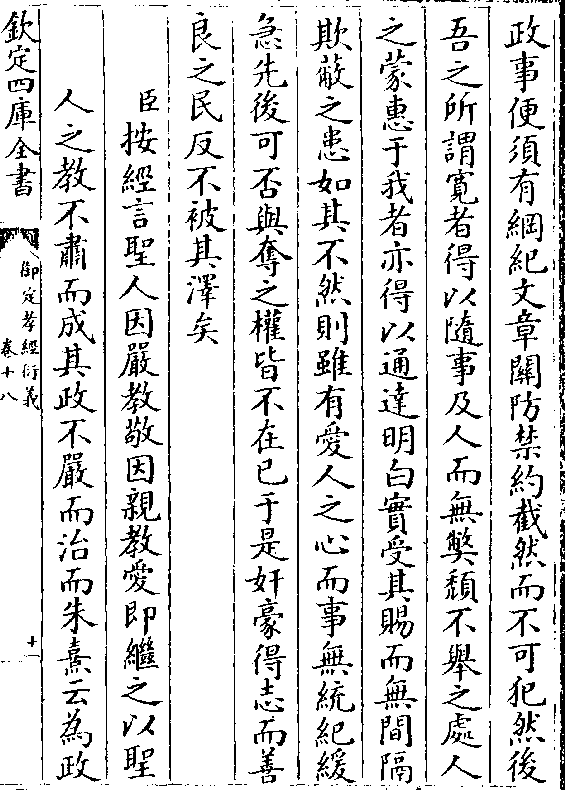 政事便須有綱紀文章關防禁約截然而不可犯然後
吾之所謂寛者得以隨事及人而無獘頽不舉之處人
之蒙惠于我者亦得以通達明白實受其賜而無間隔
欺蔽之患如其不然則雖有愛人之心而事無統紀緩
急先後可否與奪之權皆不在已于是奸豪得志而善
良之民反不被其澤矣
臣按經言聖人因嚴教敬因親教愛即繼之以聖
人之教不肅而成其政不嚴而治而朱熹云為政
欽定四庫全書
御定孝經衍義
卷十八
十一